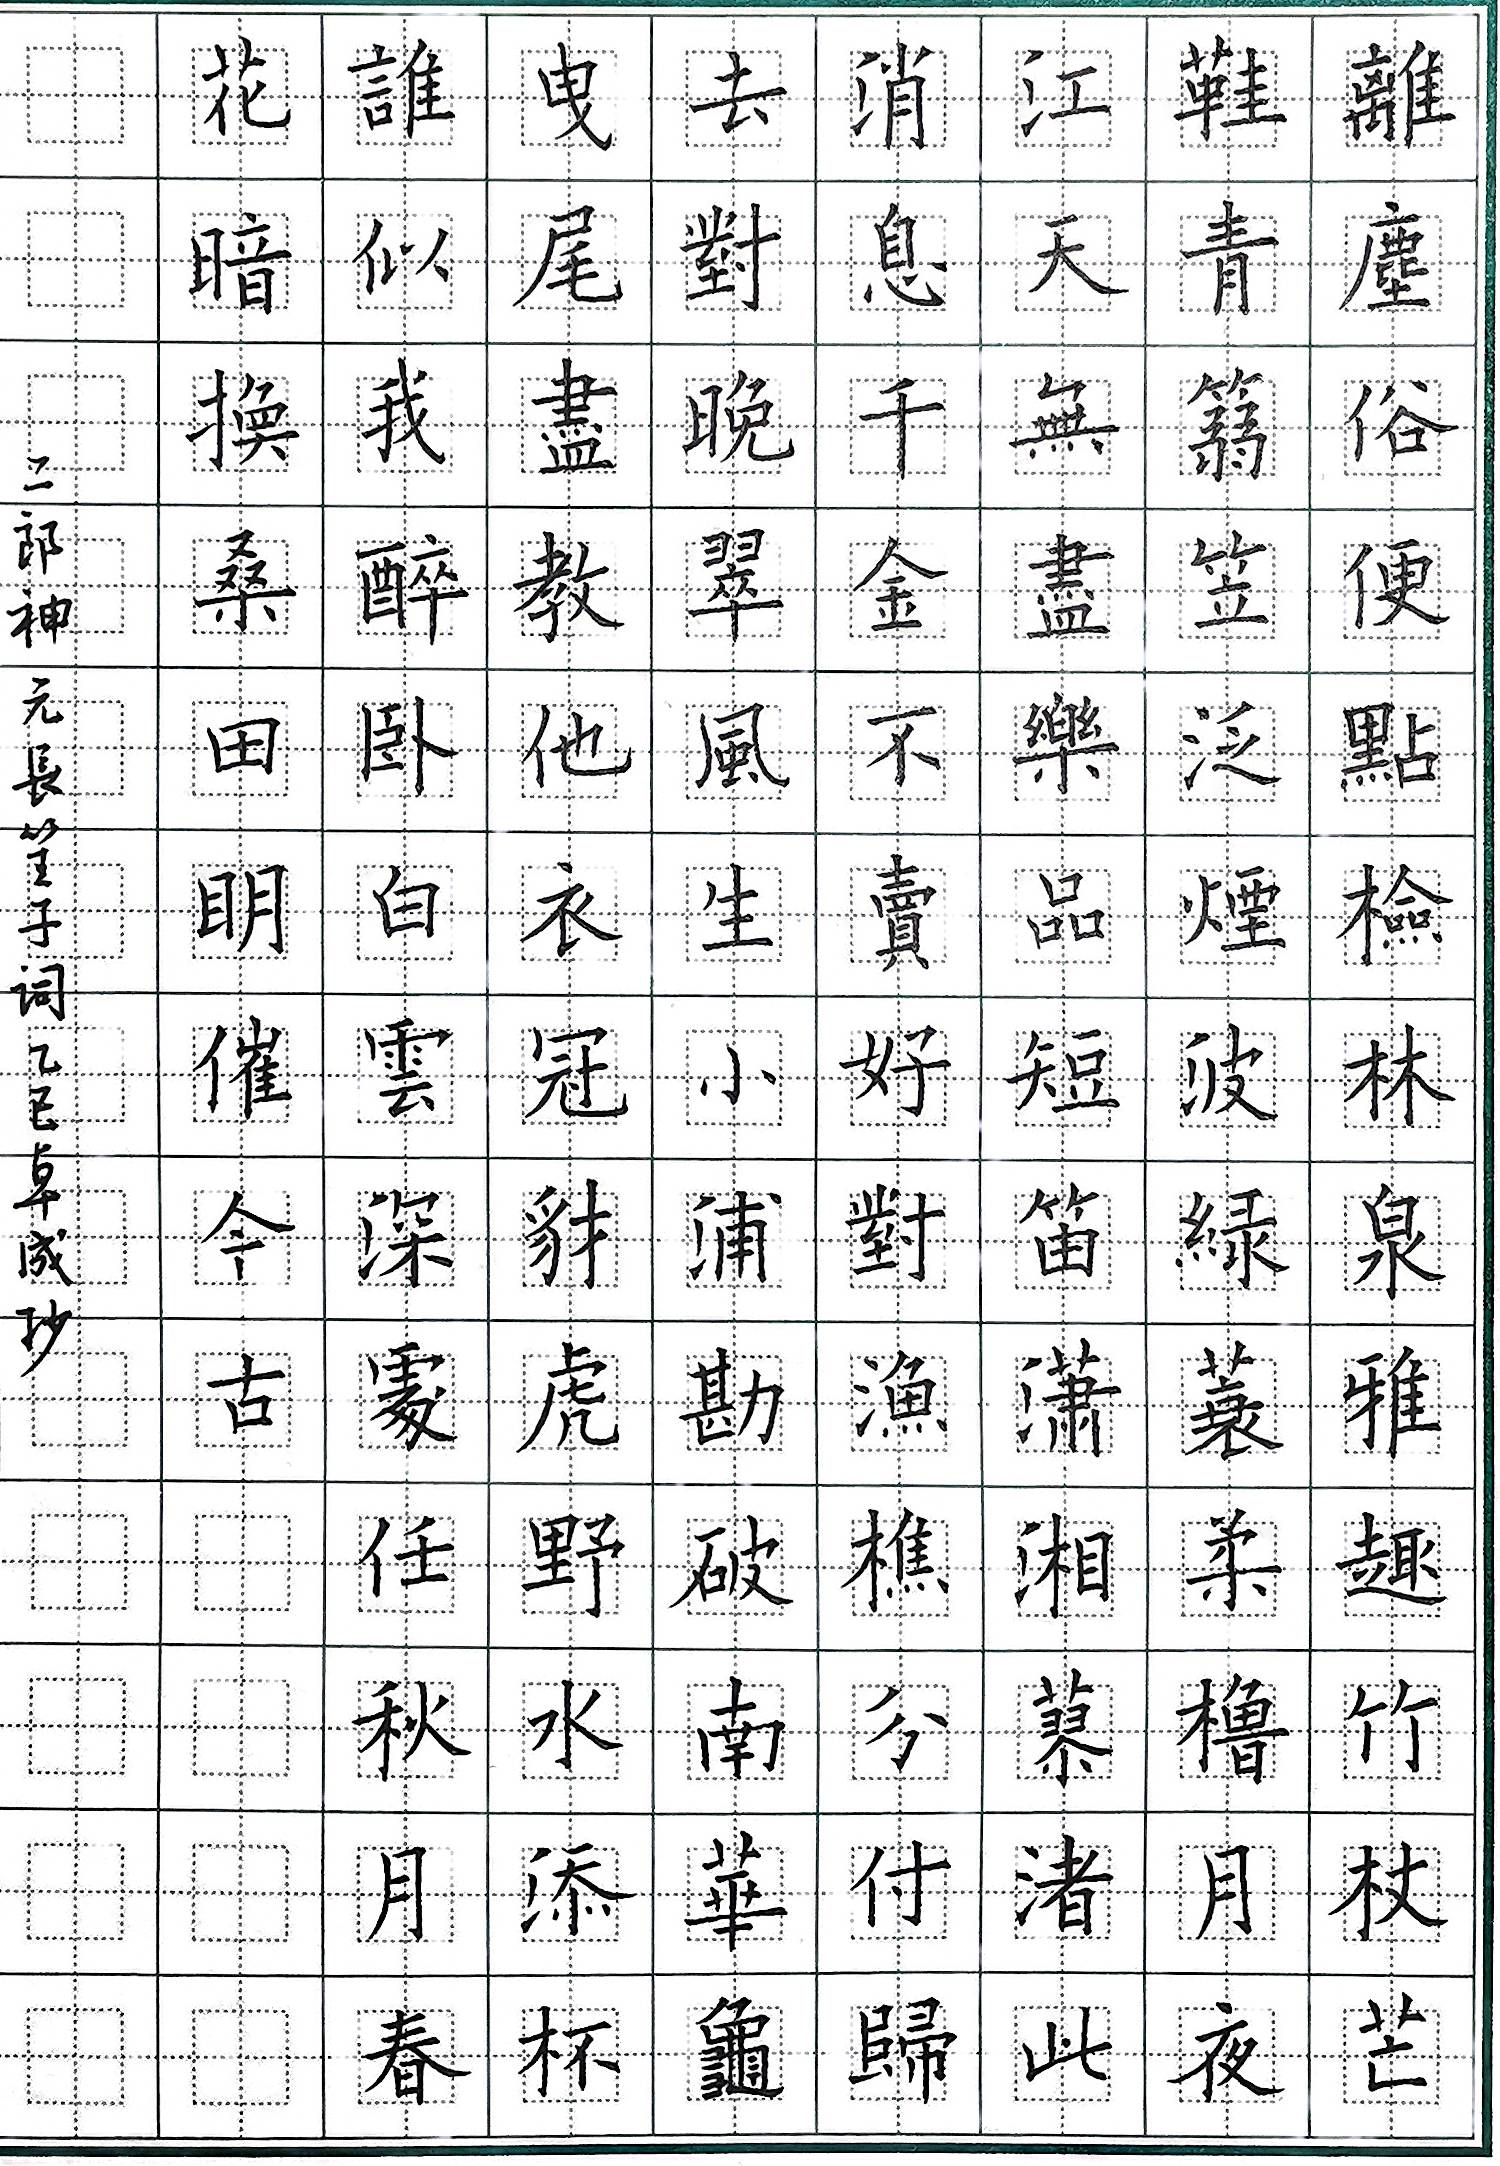 離塵俗便點檢林泉雅趣竹杖芒
鞋青篛笠泛煙波緑蓑柔櫓月夜
江天無盡樂品短笛瀟湘蓼渚此
消息千金不賣好對漁樵分付歸
去對晚翠風生小浦勘破南華龜
曳尾盡教他衣冠豺虎野水添杯
誰似我醉卧白雲深處任秋月春
花暗換桑田明催今古
二郎神 元長筌子詞 乙巳卓成抄